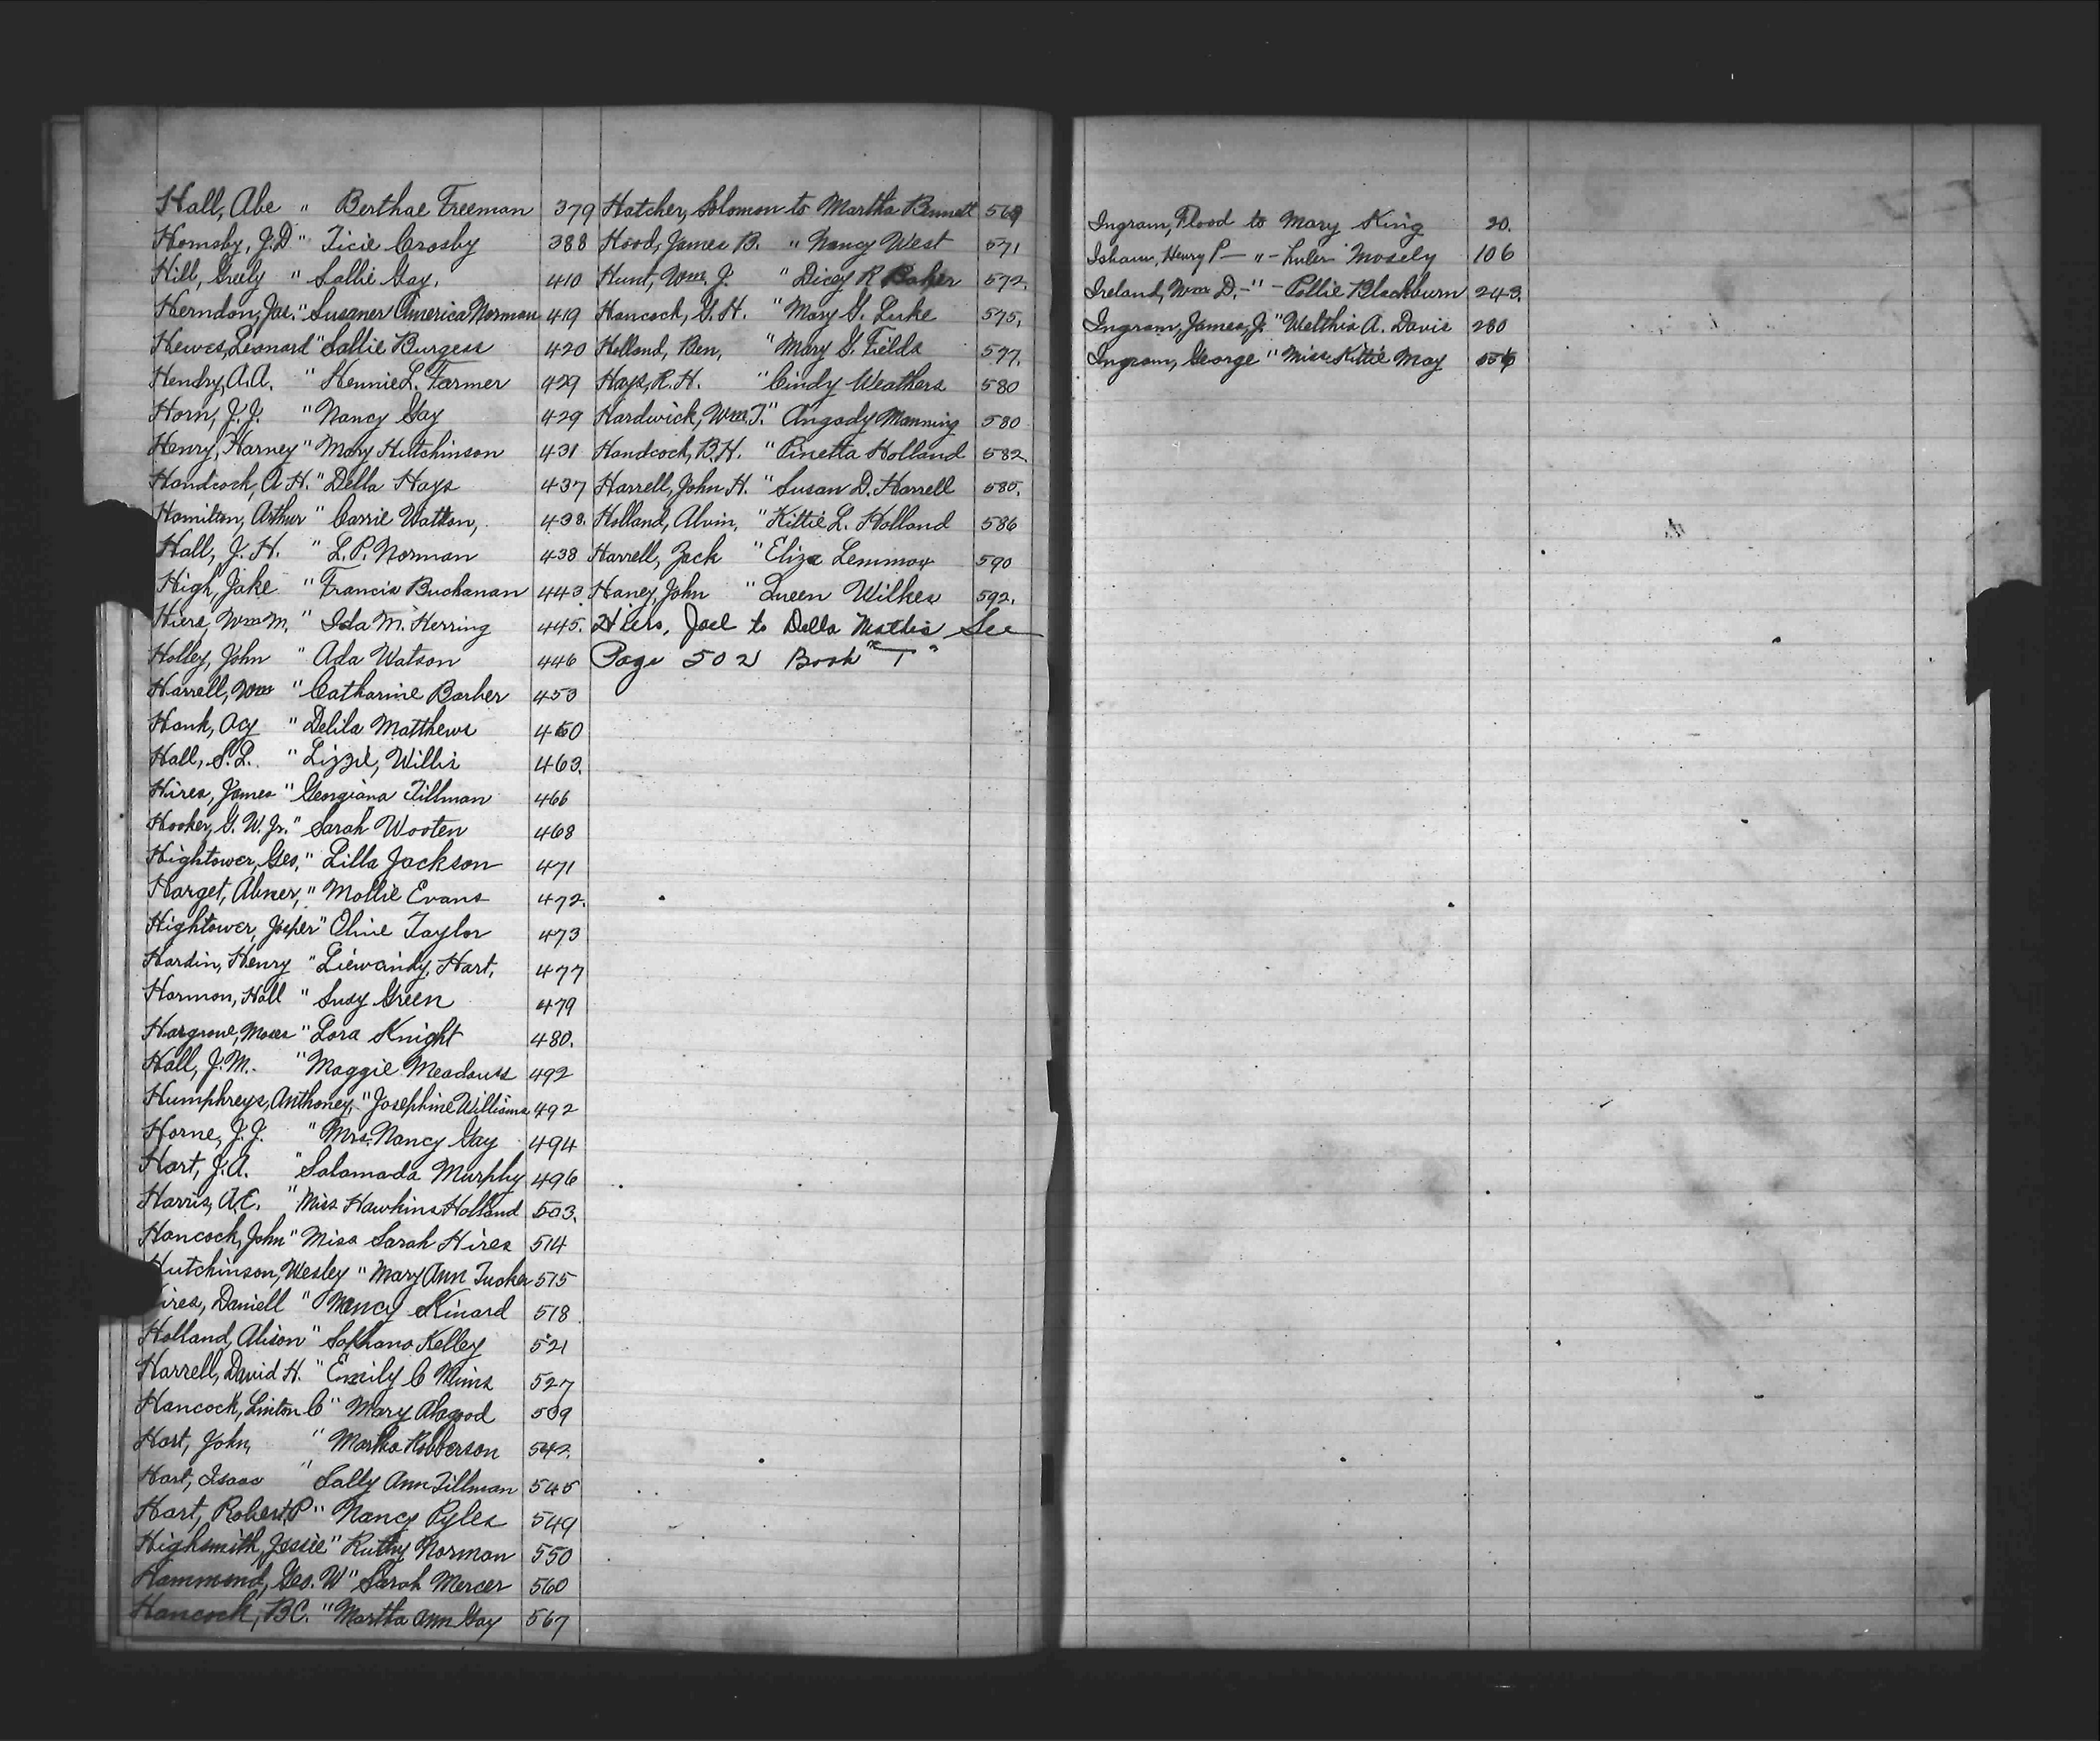 Hall, Abe " Berthae Freeman 379
Hornsby, J.D " Ticie Crosby 388
Hill, Greely " Sallie Gay. 410
Herndon, Jas. " Susaner America Norman 419
Hewes, Leonard " Sallie Burgess 420
Hendry, A.A. " Hennie L. Farmer 429
Horn, J.J. " Nancy Gay 429
Henry, Harney " Mary Hutchinson 431
Handcock, A H. " Della Hays 437
Hamilton, Arthur " Carrie Watson, 438.
Hall, J. H. " L.P. Norman 438
High, Jake " Francis Buchanan 443
Hiers, Wm M. " Ida M. Herring 445.
Holley, John " Ada Watson 446
Harrell, Wm " Catharine Barber 453
Hank, Acy " Delila Matthews 460
Hall, S.L. " Lizzie, Willis 463.
Hires, James " Georgiana Tillman 466
Hooker, G. W. Jr. " Sarah Wooten 468
Hightower, Geo, " Lilla Jackson 471
Harget, Abner, " Mollie Evans 472.
Hightower, Josper " Olivie Taylor 473
Hardin, Henry " Hart, 477
Harmon, Hall " Susy Green 479
Hargrove, Moses " Lora Knight 480.
Hall, J.M. " Maggie Meadows 492
Humphreys, Anthoney, " Josephine Williams 492
Horne, J.J. " Mrs. Nancy Gay 494
Hart, J.A. " Salamada Murphy 496
Harris, A.E. " Miss Hawkins Holland 503.
Hancock, John " Miss Sarah Hires 514
Hutchinson, Wesley " Mary Ann Tucker 515
ires, Daniell " Nancy Kinard 518
Holland, Alison " Sophano Kelley 521
Harrell, David H. " Emily C Mims 527
Hancock, Linton C " Mary Alagood 539
Hart, John, " Martha Robberson 542.
Hart, Isaac " Sally Ann Tillman 545
Hart, Robert P " Nancy Pyles 549
Highsmith, Jessie " Ruthy Norman 550
Hammond, Geo. W " Sarah Mercer 560
Hancock, B.C. " Martha Ann Gay 567
Hatcher, Solomon to Martha Bennett 569
Hood, James B. " Nancy West 571
Hunt, Wm. J. " Dicey R Baker 572.
Hancock, G. H. " Mary G. Luke 575.
Holland, Ben, " Mary G. Fields 577.
Hays, R. H. " Cindy Weathers 580
Hardwick, Wm. T. " Angady Manning 580
Handcock, B.H. " Pinetta Holland 582.
Harrell, John H. " Susan D. Harrell 585.
Holland, Alvin, " Kittie L. Holland 586
Harrell, Zack " Eliza Lemmox 590
Haney, John " Queen Wilkes 592.
Hiers, Joel to Della Mathis See
Page 502 Book "T"
Ingram, Flood to Mary King 20.
Isham, Henry P — " – Luler Mosely 106
Ireland, Wm D. – " – Pollie Blackburn 243.
Ingram, James, J. " Welthia A. Davis 280
Ingram, George " Miss Kittie May 556